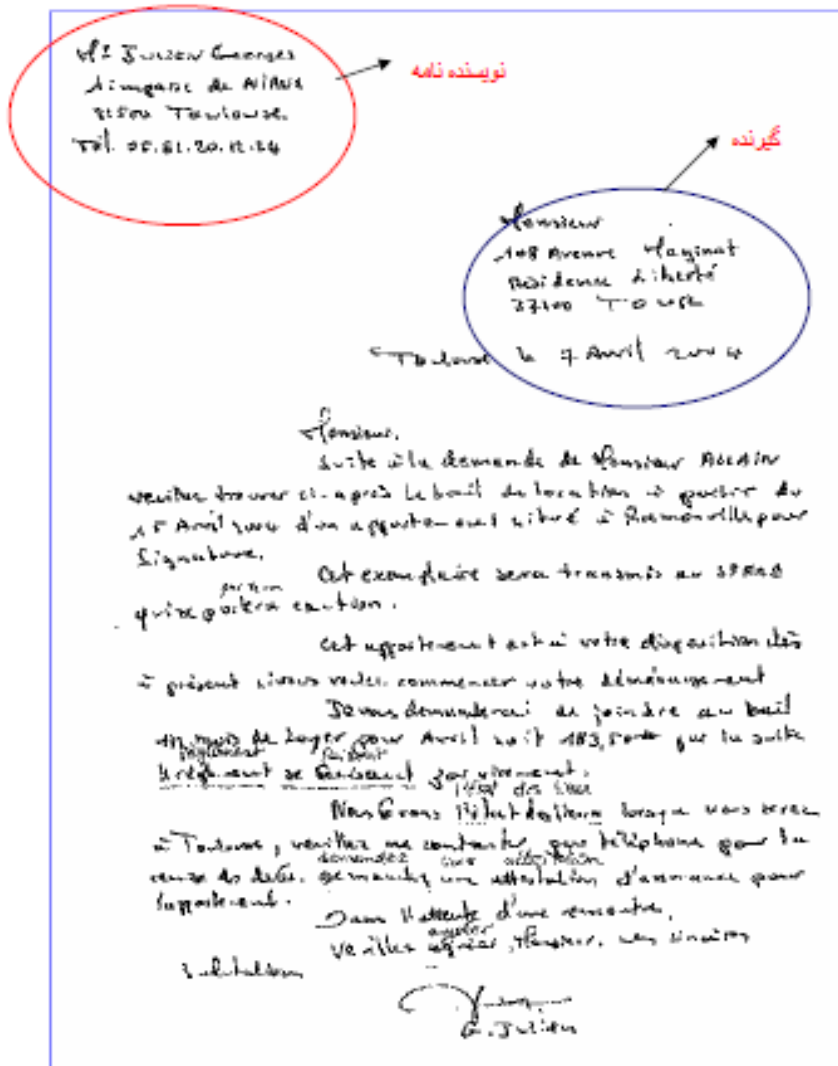 Mr Julien Georges
impasse de
31500 Toulouse
Tél. 05.61.20.12.24
نویسنده نامه
گیرنده
Monsieur
108 Avenue Maginot
Résidence Liberté
37100 TOURS
Toulouse le 7 Avril 2004
Monsieur,
Suite à la demande de Monsieur
veuillez trouver ci-après le bail de location à partir du
15 Avril 2004 d'un appartement situé à Ramonville pour
Signature.
Cet exemplaire sera transmis au
caution.
Cet appartement est à votre disposition dès
à présent si vous voulez commencer votre déménagement
Je vous demanderai de joindre au bail
mois de loyer pour Avril soit 183,50 la suite
règlement faisant
le règlement se faisant par virement.
l'état des lieux
Nous ferons l'état des lieux lorsque vous serez
à Toulouse, veuillez me contacter par téléphone pour
demandez une attestation
une attestation d'assurance pour
l'appartement.
Dans l'attente d'une rencontre,
Veuillez agréer, Monsieur, mes sincères
salutations
G. Julien